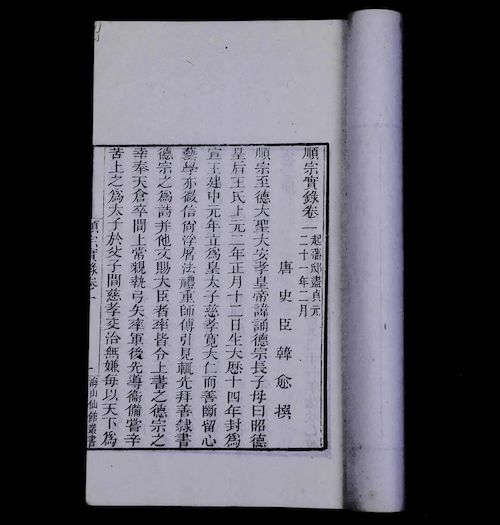 順宗實錄卷一
起藩邸盡貞元
二十一年二月
唐史臣韓愈撰
順宗至德大聖大安孝皇帝諱誦德宗長子母曰昭德
皇后王氏上元二年正月十二日生大歷十四年封為
宣王建中元年立為皇太子慈孝寬大仁而善斷留心
藝學亦微信尚浮屠法禮重師傅引見輒先拜善隸書
德宗之為詩并他文賜大臣者率皆令上書之德宗之
幸奉天倉卒間上常親執弓矢率軍後先導衛備嘗辛
苦上之為太子於父子間慈孝交洽無嫌每以天下為
順宗實錄卷一
一
海山仙館叢書